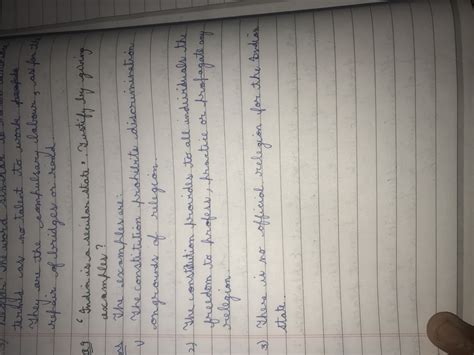 They are the compulsary labour, as for the
repair of bridges or road.
"India is a secular state". Justify by giving
examples?
The examples are:
The constitution prohibits discrimination
on grounds of relegion
2) The constitution provides to all individuals the
freedom to profess, practice or propagate any
relegion
3) There is no official relegion for the Indian
state.